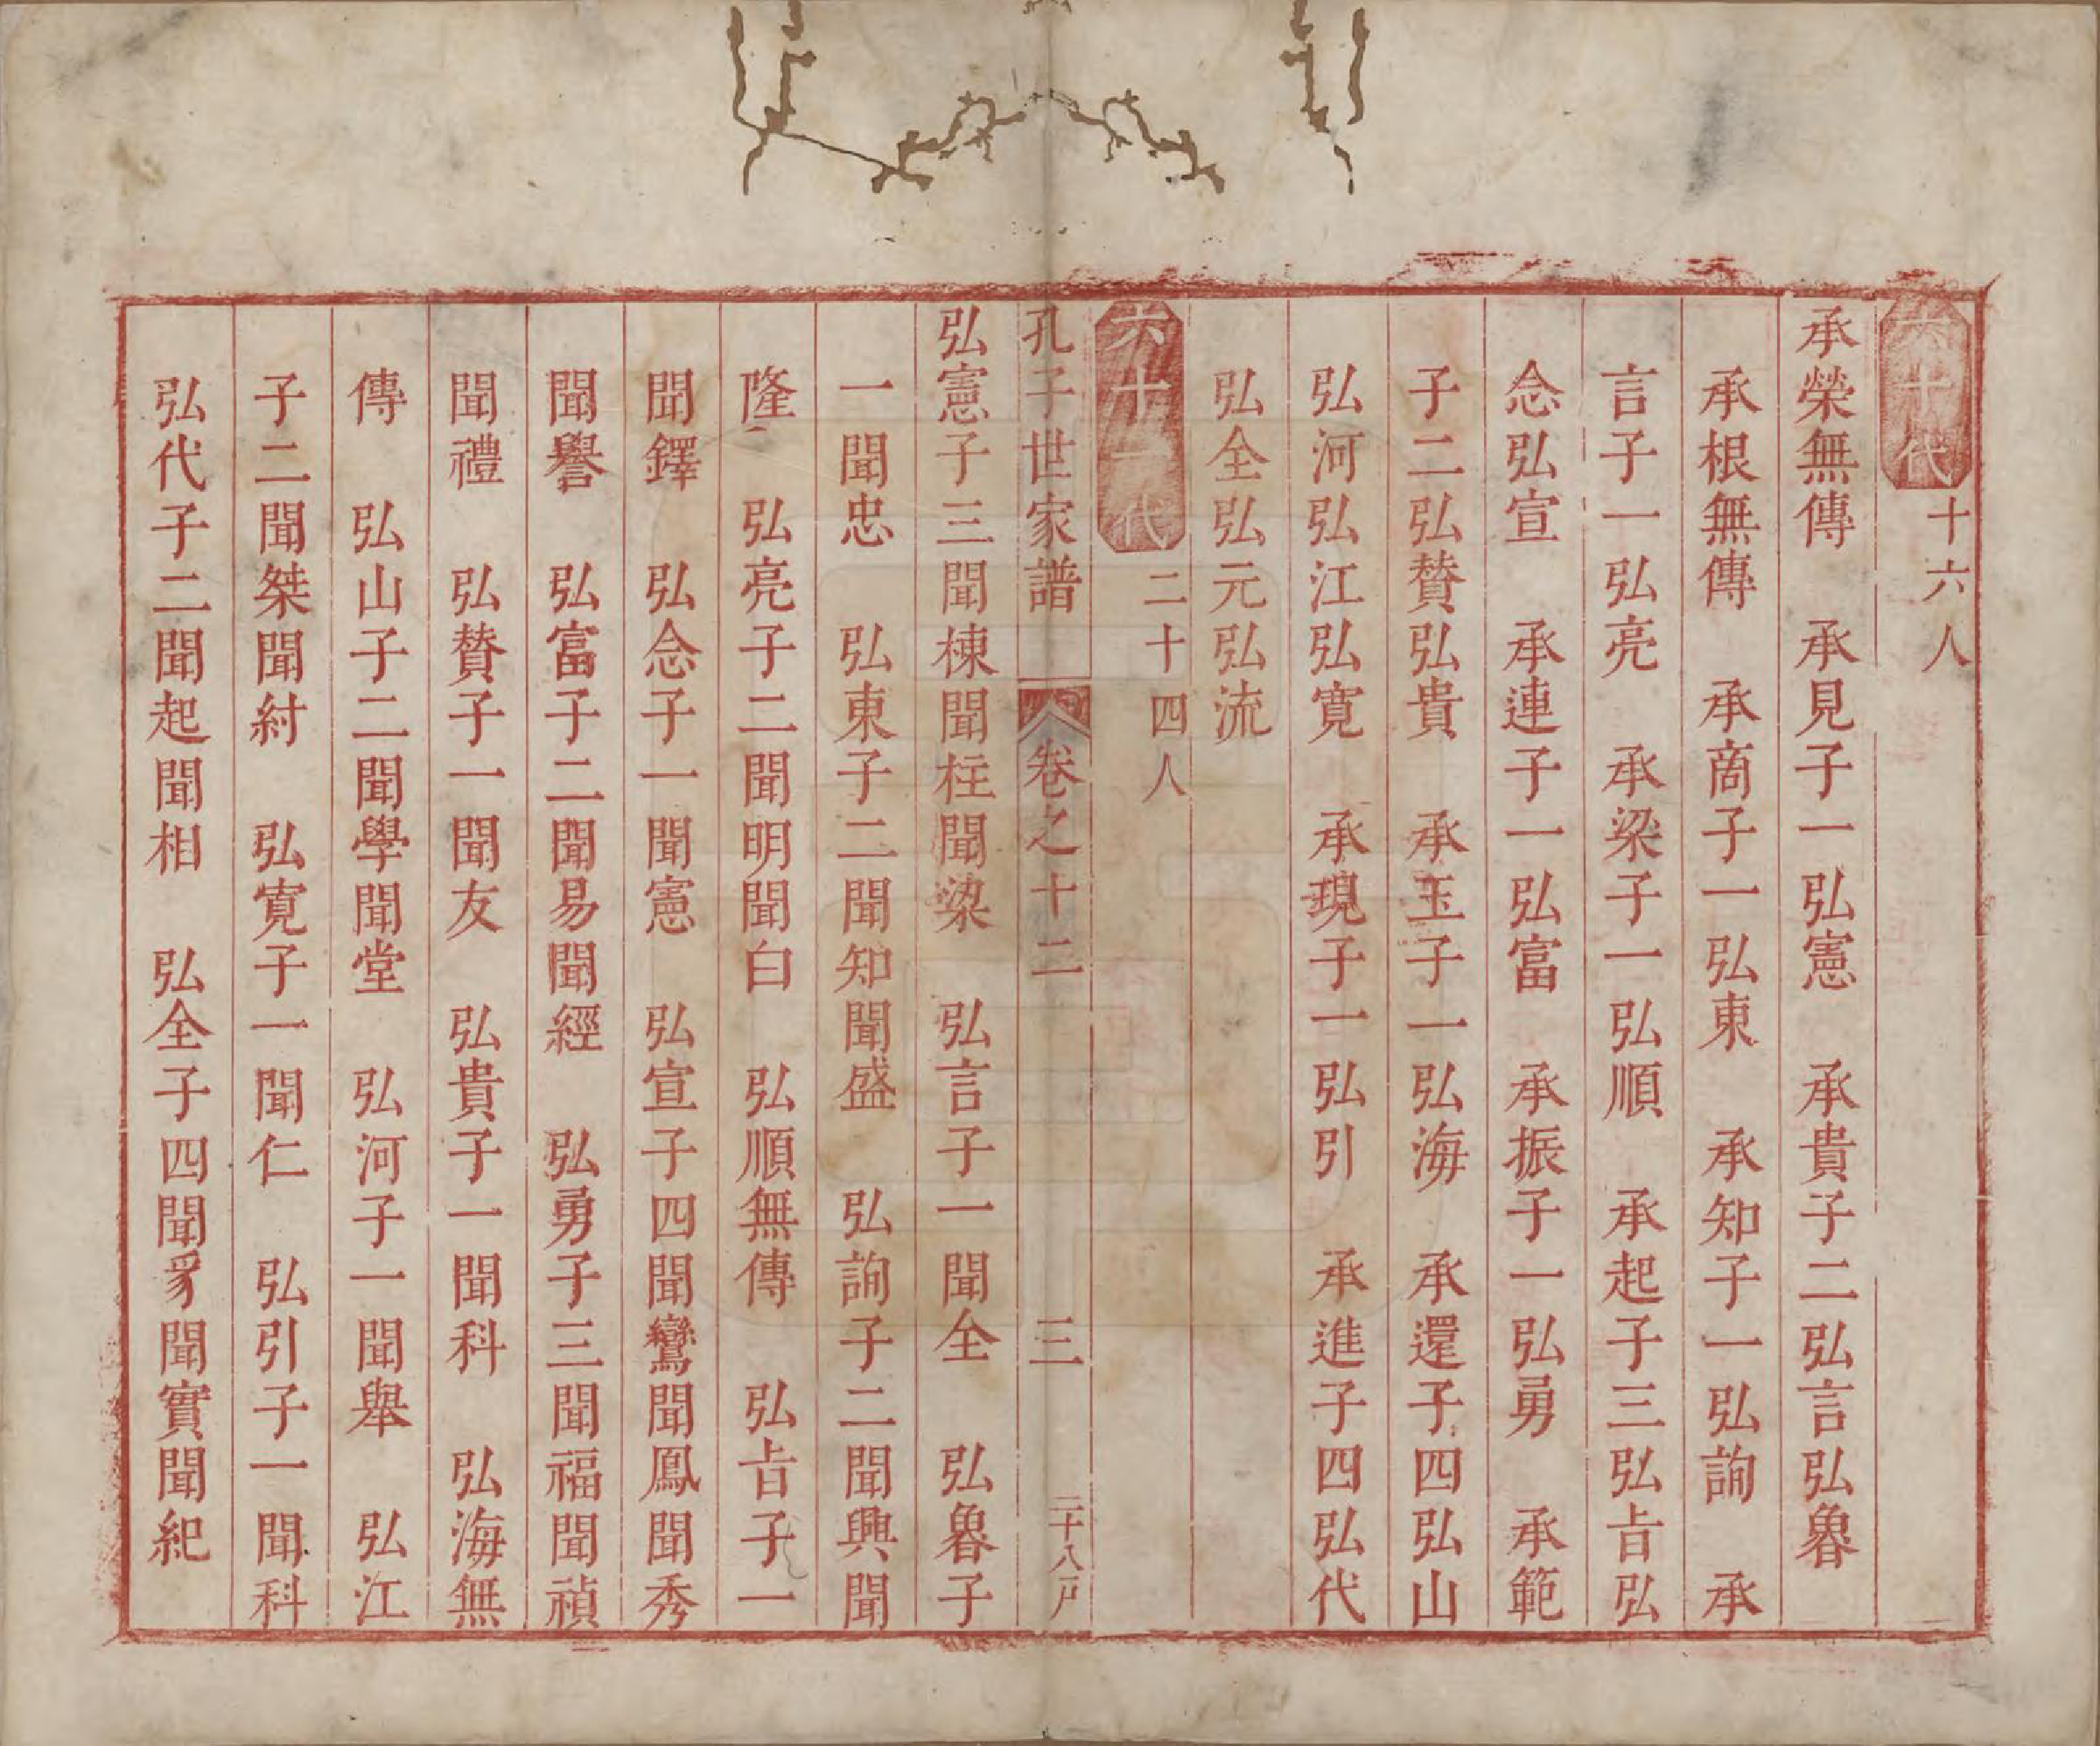 六十代 十六人
承榮無傳 承見子一弘憲 承貴子二弘言弘魯
承根無傳 承商子一弘東 承知子一弘詢 承
言子一弘亮 承梁子一弘順 承起子三弘㫖弘
念弘宣 承連子一弘富 承振子一弘勇 承範
子二弘賛弘貴 承玉子一弘海 承還子四弘山
弘河弘江弘寛 承現子一弘引 承進子四弘代
弘全弘元弘流
六十一代 二十四人
孔子世家譜 卷之十二 三 二十八戸
弘憲子三聞棟聞柱聞梁 弘言子一聞全 弘魯子
一聞忠 弘東子二聞知聞盛 弘詢子二聞興聞
隆 弘亮子二聞明聞白 弘順無傳 弘㫖子一
聞鐸 弘念子一聞憲 弘宣子四聞鸞聞鳳聞秀
聞譽 弘富子二聞易聞經 弘勇子三聞福聞禎
聞禮 弘賛子一聞友 弘貴子一聞科 弘海無
傳 弘山子二聞學聞堂 弘河子一聞舉 弘江
子二聞桀聞紂 弘寛子一聞仁 弘引子一聞科
弘代子二聞起聞相 弘全子四聞豸聞實聞紀